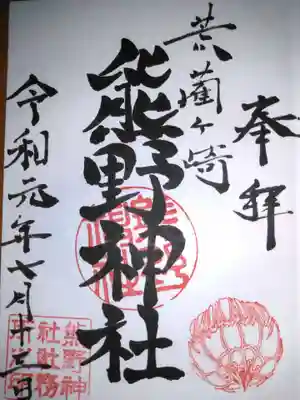 奉拝
芸藺ヶ崎
熊野神社
令和元年七月廿三日
熊野神
社社務